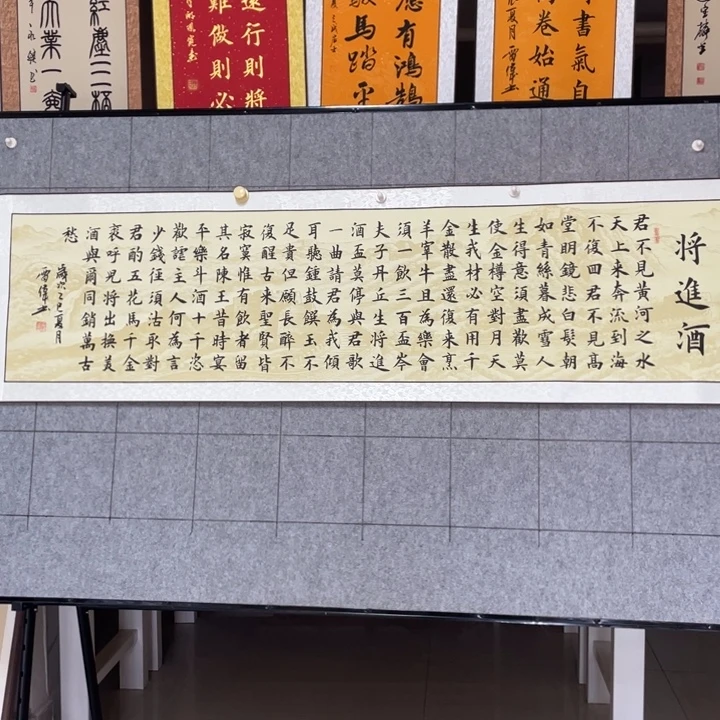 書氣自
卷始通
夏月雷偉書
應有鴻鵠
馬踏平
行則將
難做則必
紅塵三
業一
將進酒
君不見黃河之水
天上来奔流到海
不復回君不見高
堂明鏡悲白髮朝
如青絲暮成雪人
生得意須盡歡莫
使金樽空對月天
生我材必有用千
金散盡還復来烹
羊宰牛且為樂會
須一飲三百盃岑
夫子丹丘生將進
酒盃莫停與君歌
一曲請君為我傾
耳聽鍾鼓饌玉不
足貴但願長醉不
復醒古来聖賢皆
寂寞惟有飲者留
其名陳王昔時宴
平樂斗酒十千恣
歡謔主人何為言
少錢徑須沽取對
君酌五花馬千金
裘呼児將出換美
酒與爾同銷萬古
愁
歲次乙巳夏月
雷偉書